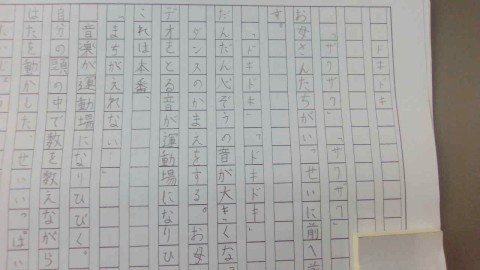 ドキドキ
「ザワザワ」「ザワザワ」
お母さんたちがいっせいに前へ
す。
「ドキドキ」「ドキドキ」
だんだん心ぞうの音が大きくな
ダンスのかまえをする。お母
デオをとる音が運動場になりひ
これは本番
「まちがえれない」
音楽が運動場になりひびく。
自分の頭の中で数を数えながら
はたを動かした。せいいっぱい